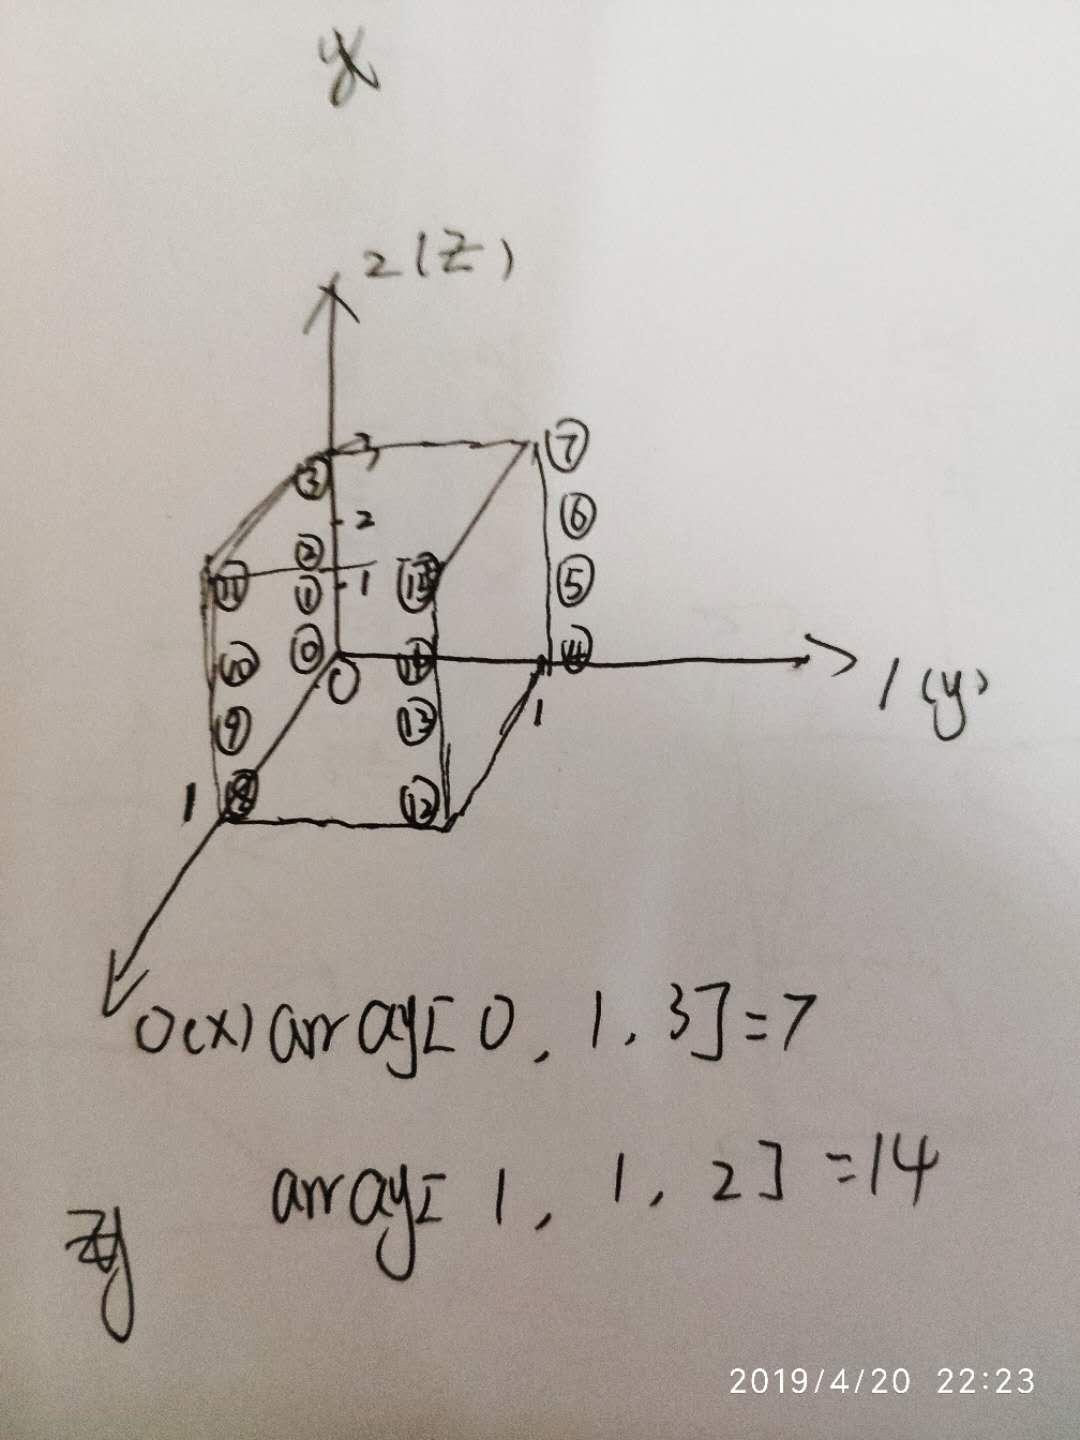 2(Z)
3
③ ⑦
2
⑥
②
⑪ ① 1 ⑮ ⑤
⑩ ⓪ ⑭ ④
0
1(y)
⑨ ⑬ 1
1 ⑧ ⑫
0(X) array[0, 1, 3]=7
array[1, 1, 2]=14
2019/4/20 22:23